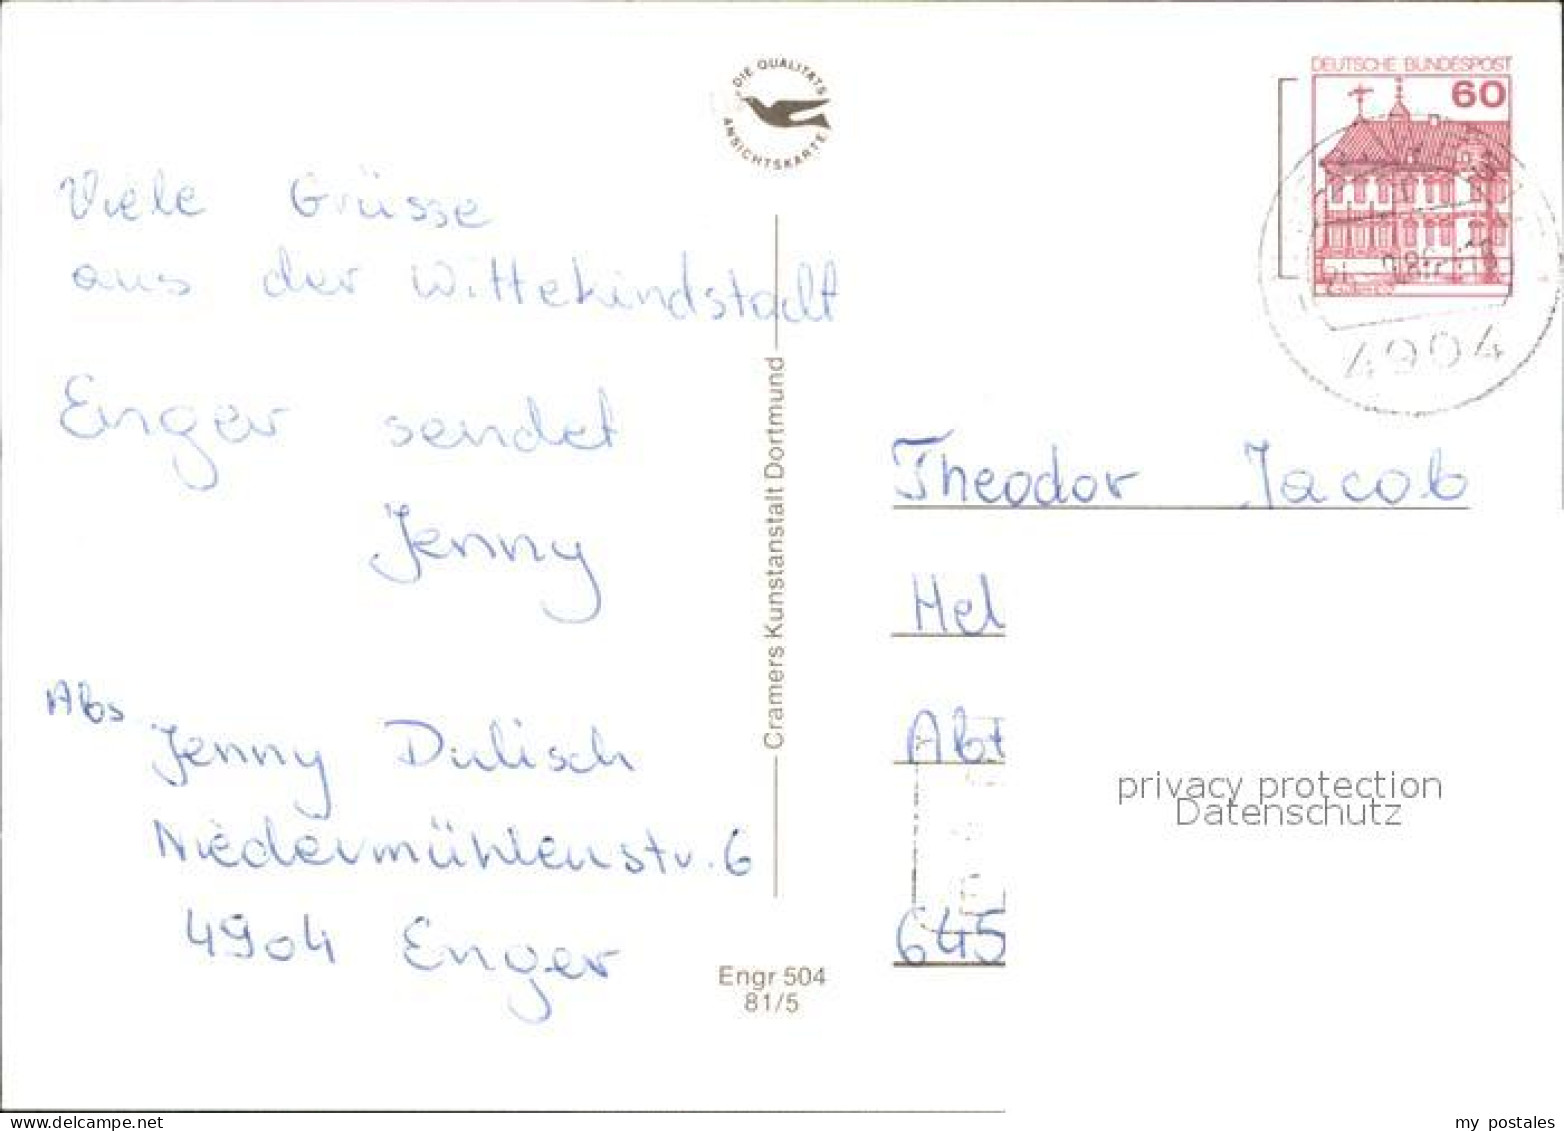 DIE QUALITÄTS
ANSICHTSKARTE
DEUTSCHE BUNDESPOST
60
4904
Viele Grüsse
aus der Wittekindstadt
Enger sendet
Jenny
Abs
Jenny Dulisch
Niedermühlenstr. 6
4904 Enger
Cramers Kunstanstalt Dortmund
Engr 504
81/5
Theodor Jacob
Hel
Abt
645
privacy protection
Datenschutz
my postales
www.delcampe.net